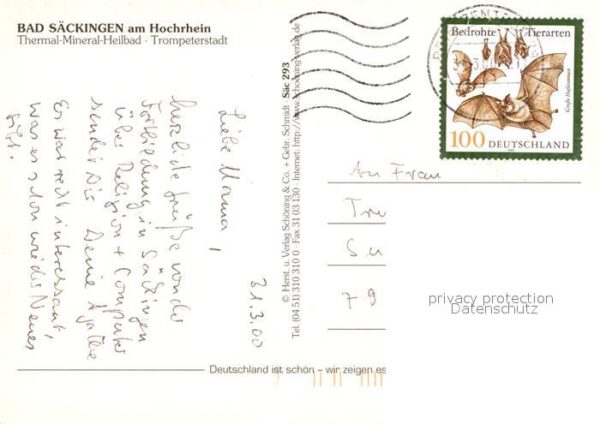 BAD SÄCKINGEN am Hochrhein
Thermal-Mineral-Heilbad · Trompeterstadt
31.3.00
Liebe Mama,
herzliche Grüße von der
Fortbildung in Säckingen
über Religion + Computer
sendet Dir Deine
Es war recht interessant,
was es schon wieder Neues
gibt.
© Herst. u. Verlag Schöning & Co. + Gebr. Schmidt Säc 293
Tel. (04 51) 310 310 0 · Fax 31 03 130 · Internet: http://www.schöning-verlag.de
Bedrohte Tierarten
Große Hufeisennase
100 DEUTSCHLAND
An Frau
79
privacy protection
Datenschutz
Deutschland ist schön – wir zeigen es